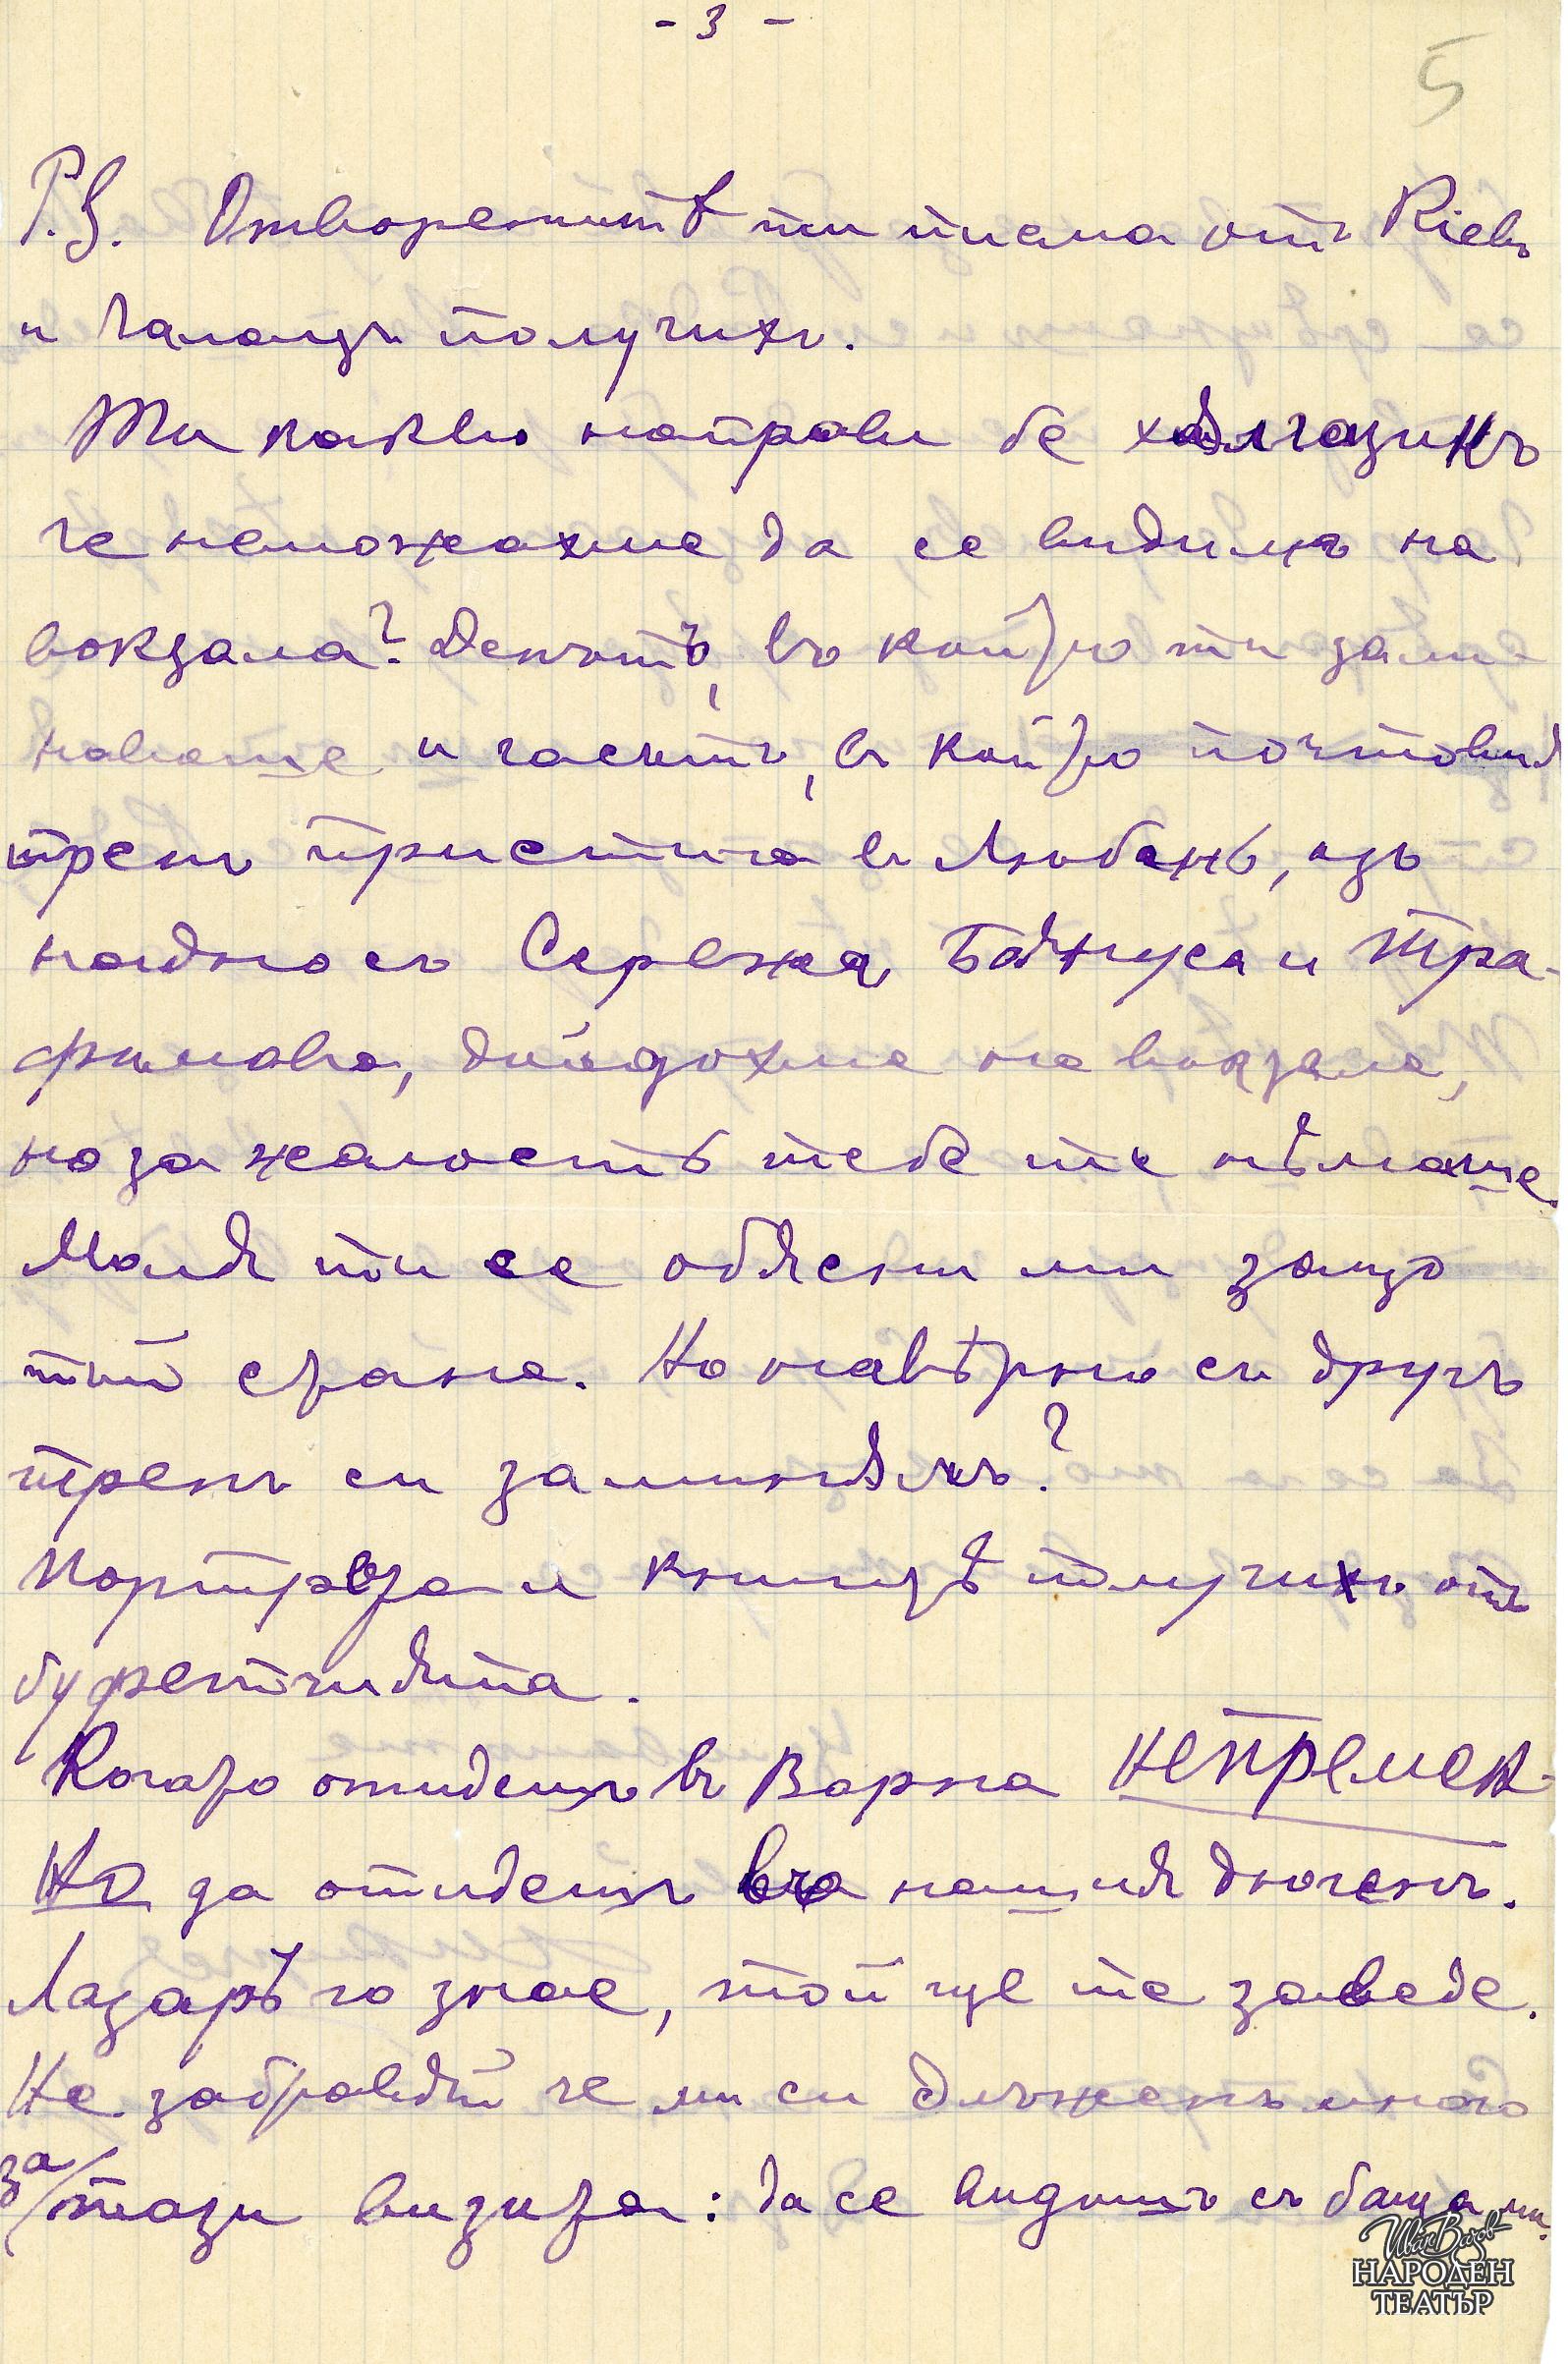 - 3 -
5
P.S. Отворенитѣ ти писма отъ Киевъ
и Галацъ получихъ.
Ти какво направи бе хаймазинъ
че неможахме да се видимъ на
вокзала? Деньтъ, въ който ти зами-
наваше и часътъ, въ който почтовия
тренъ пристига въ Любань, азъ
наедно съ Сережа, Байнуса и Тра-
филова, дойдохме на вокзала,
но за жалость тебе те нѣмаше.
Моля ти се обясни ми защо
тъй стана. Но навѣрно съ другъ
тренъ си заминалъ?
Портрета и книгитѣ получихъ отъ
буфетчията.
Когато отидешъ въ Варна непремен-
но да отидешъ въ нашия дюгенъ.
Лазаръ го знае, той ще те заведе.
Не забравяй че ми си длъженъ много
за тази визита: да се видишъ съ баща ми.
Иван Вазов
НАРОДЕН
ТЕАТЪР